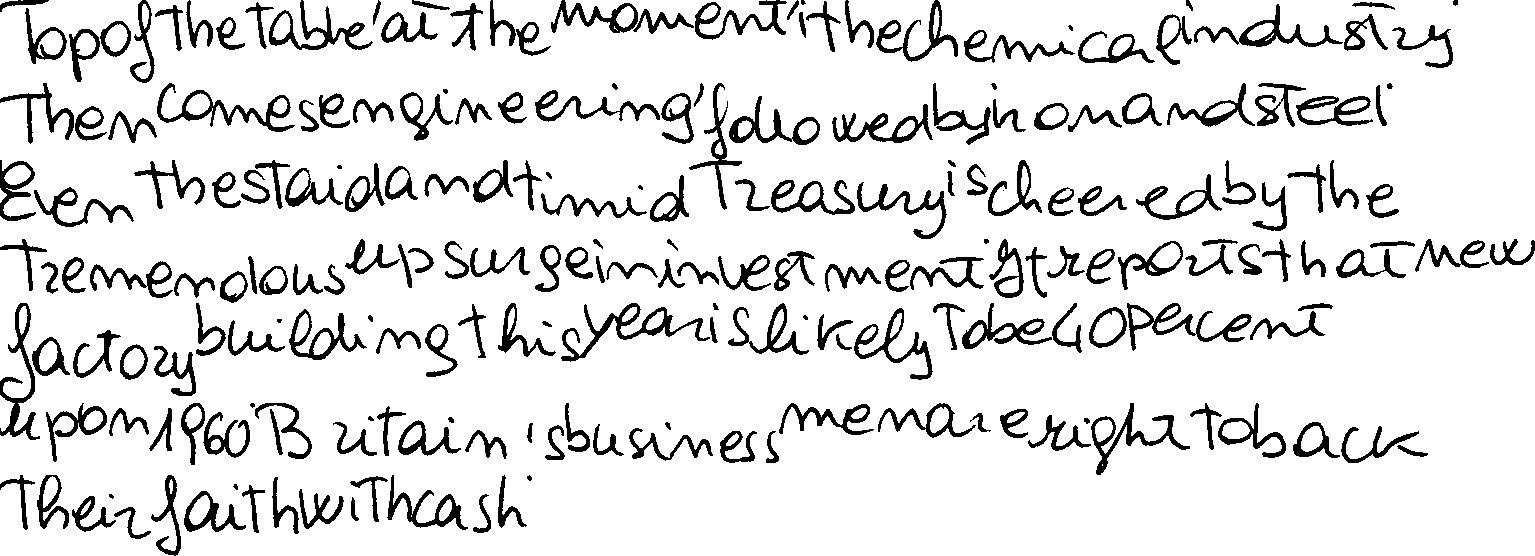 Top of the table at the moment i the chemical industry
Then comes engineering followed by iron and steel
Even the staid and timid Treasury is cheered by the
tremendous upsurge in investment. It reports that new
factory building this year is likely to be 40 per cent
up on 1960. Britain's business men are right to back
their faith with cash